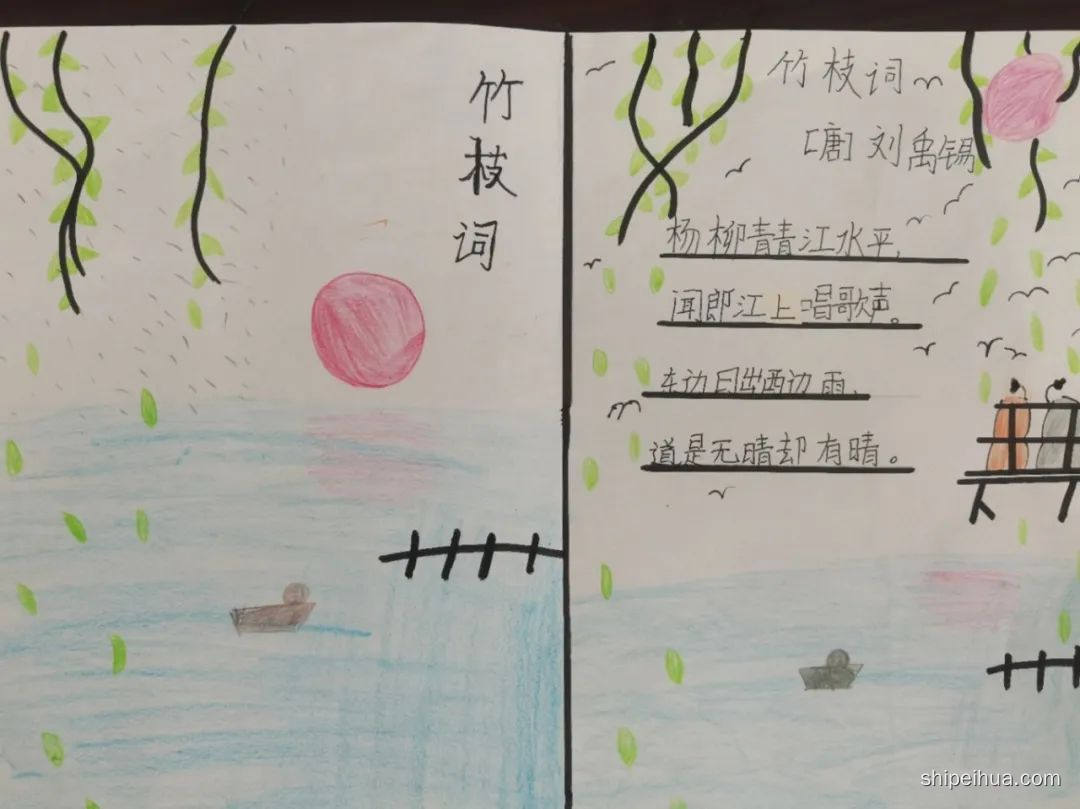 竹枝词
竹枝词
[唐]刘禹锡
杨柳青青江水平,
闻郎江上唱歌声。
东边日出西边雨,
道是无晴却有晴。
shipeihua.com